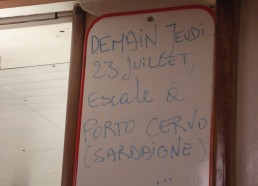 DEMAIN JEUDI
23 juillet,
Escale à
PORTO CERVO
(SARDAIGNE)
...